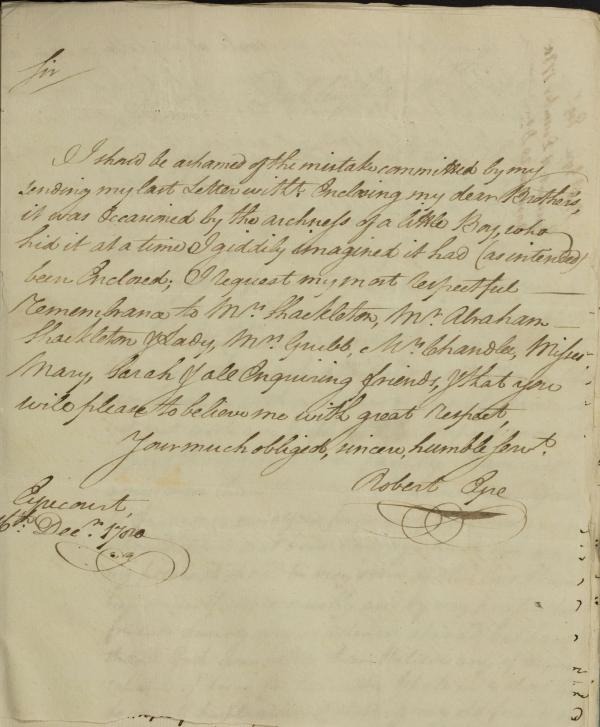 Sir
I should be ashamed of the mistake committed by my
sending my last Letter witht. Enclosing my dear Brother's,
it was Occasioned by the archness of a little Boy, who
hid it at a time I giddily imagined it had (as intended)
been Enclosed; I request my most respectful
remembrance to Mrs. Shackleton, Mr. Abraham
Shackleton & Lady, Mrs. Grubb, Mrs. Chandlee, Misses
Mary, Sarah & all Enquiring friends, & that you
will please to believe me with great respect,
Your much obliged, sincere, humble Servt.
Robert Eyre
Eyrecourt,
6th. Decr. 1780